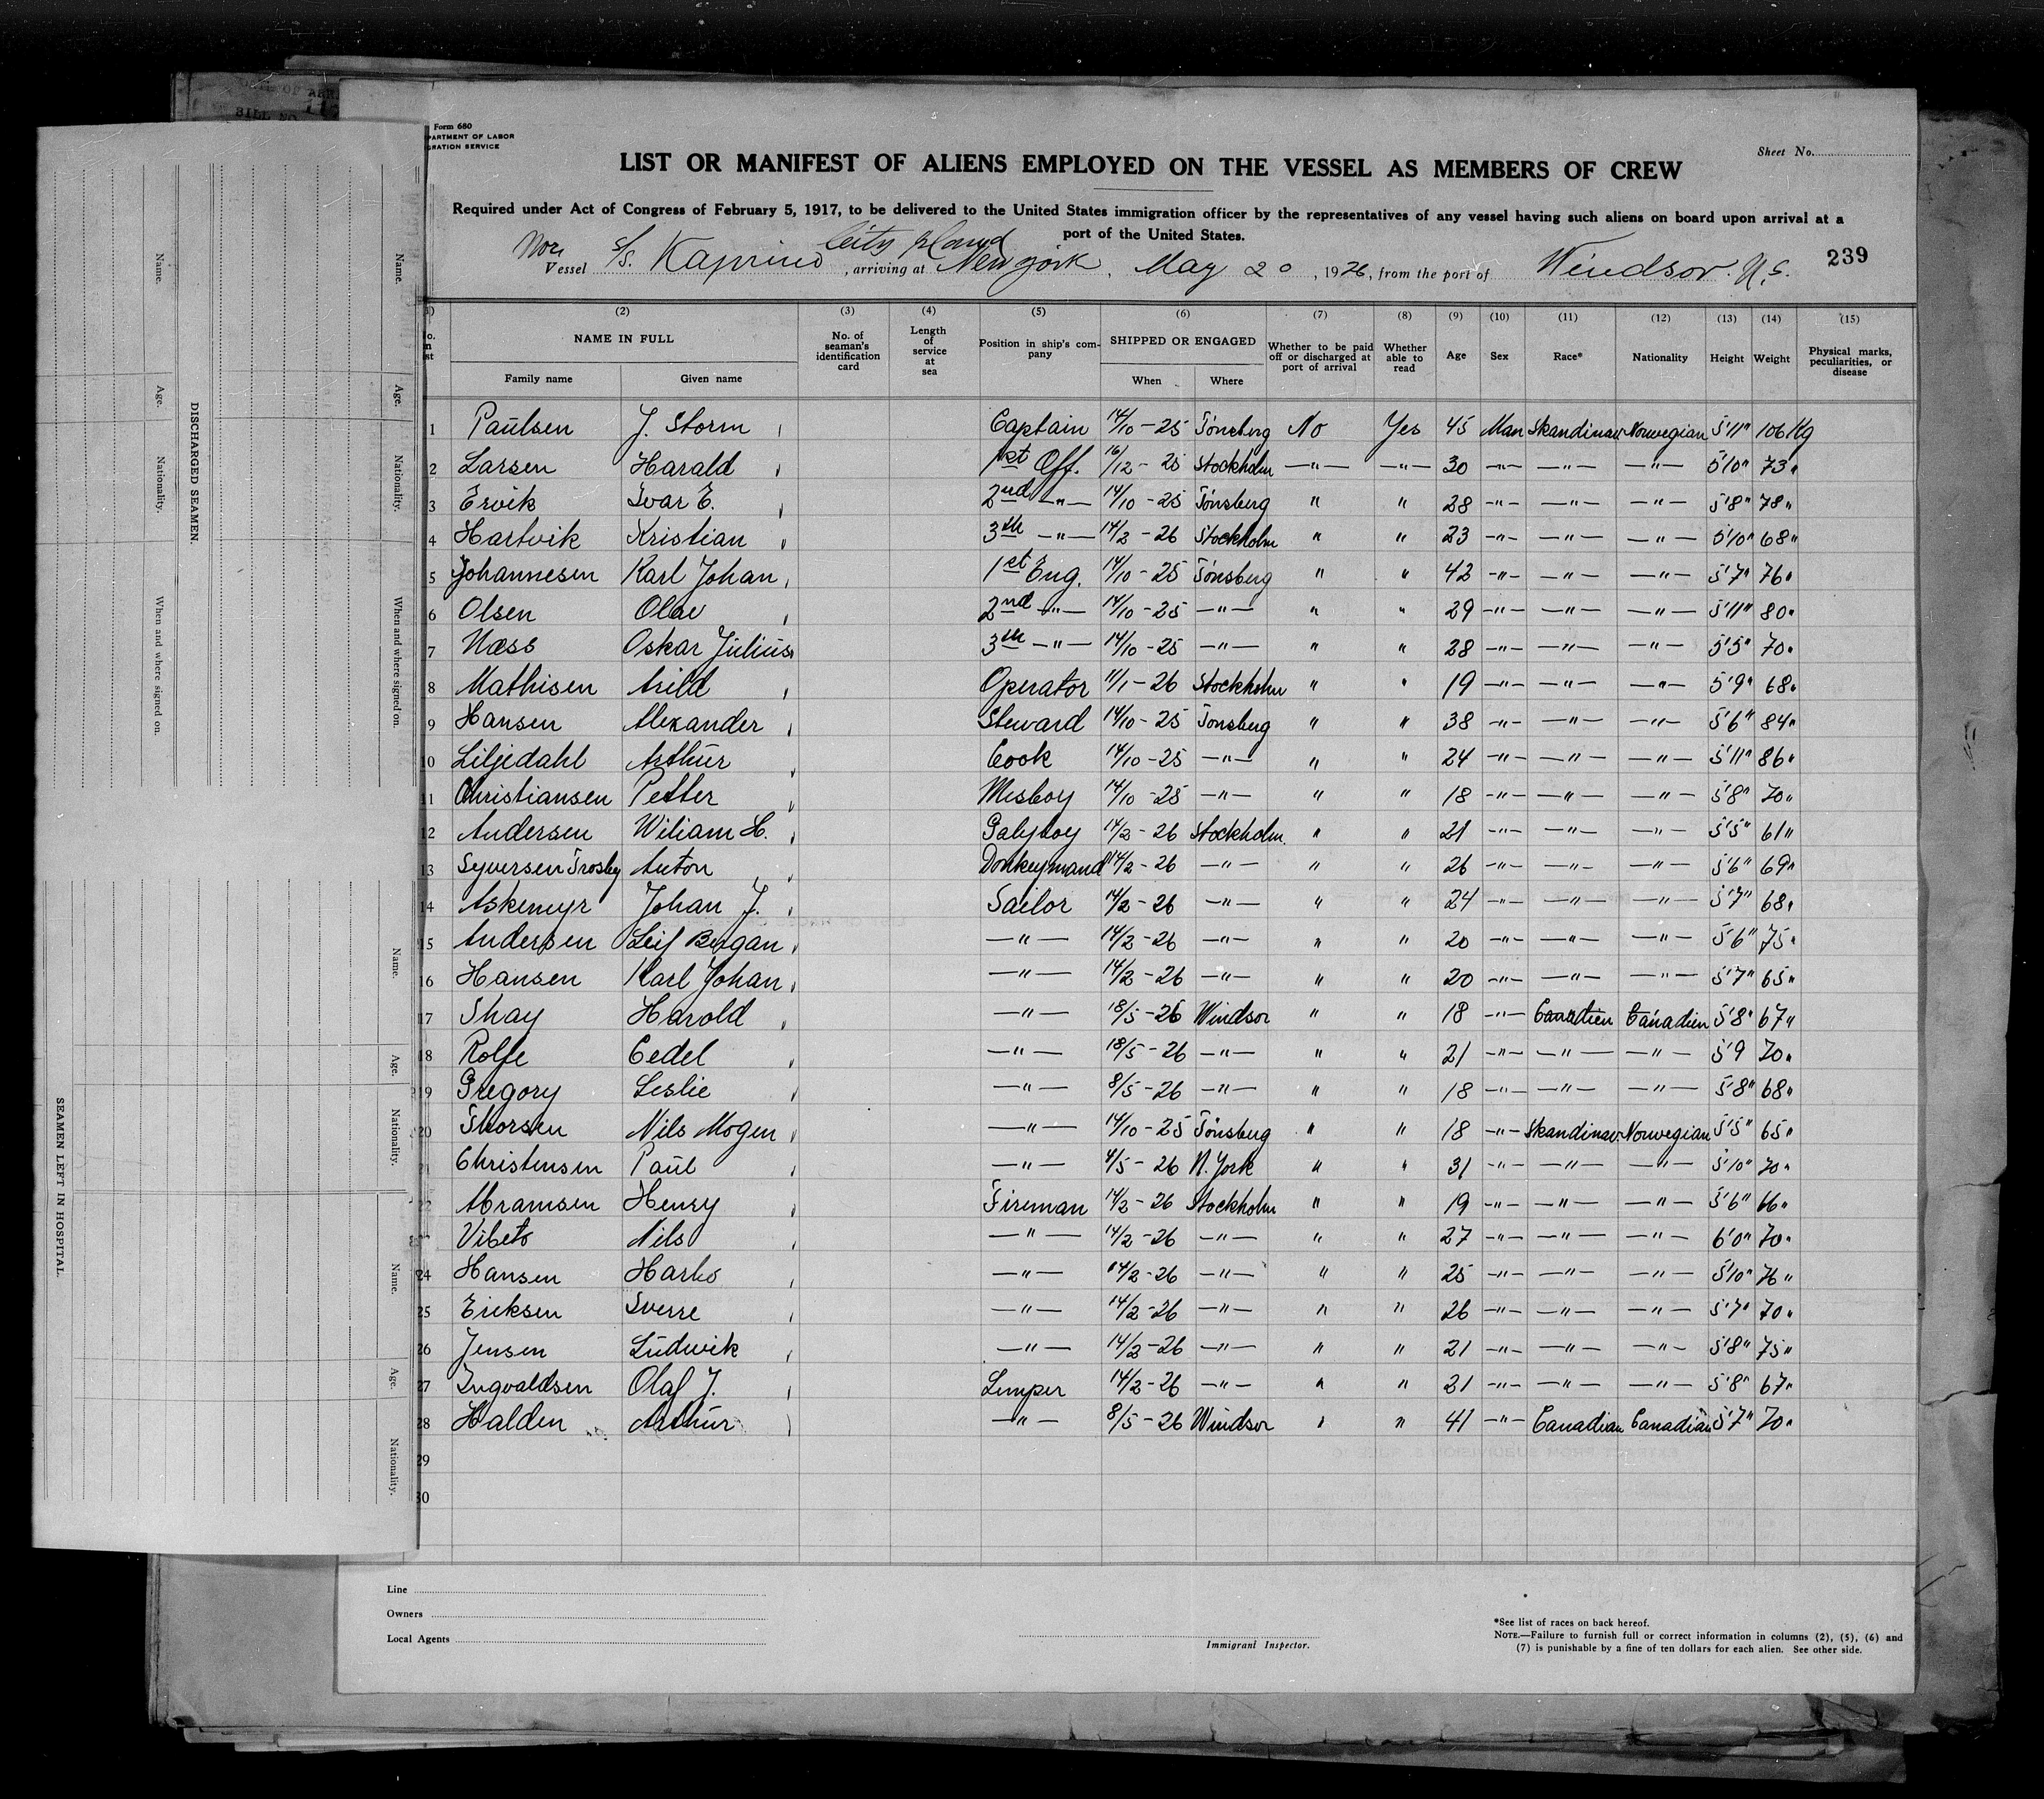 Form 680
PARTMENT OF LABOR
GRATION SERVICE
Sheet No.
LIST OR MANIFEST OF ALIENS EMPLOYED ON THE VESSEL AS MEMBERS OF CREW
Required under Act of Congress of February 5, 1917, to be delivered to the United States immigration officer by the representatives of any vessel having such aliens on board upon arrival at a
port of the United States.
City Island
Nor. Vessel S/S. Kaprino, arriving at New york, May 20, 1926, from the port of Windsor. N.S.
239
(2) (3) (4) (5) (6) (7) (8) (9) (10) (11) (12) (13) (14) (15)
NAME IN FULL No. of seaman's identification card Length of service at sea Position in ship's company SHIPPED OR ENGAGED Whether to be paid off or discharged at port of arrival Whether able to read Age Sex Race* Nationality Height Weight Physical marks, peculiarities, or disease
Family name Given name When Where
1 Paulsen J. Storm Captain 14/10-25 Tönsberg No Yes 45 Man Skandinav Norwegian 5'11" 106 Kg
2 Larsen Harald 1st Off. 16/12-25 Stockholm —"— —"— 30 —"— —"— —"— 5'10" 73"
3 Ervik Ivar E. 2nd —"— 14/10-25 Tönsberg " " 28 —"— —"— —"— 5'8" 78"
4 Hartvik Kristian 3th —"— 14/2-26 Stockholm " " 23 —"— —"— —"— 5'10" 68"
5 Johannesen Karl Johan 1st Eng. 14/10-25 Tönsberg " " 42 —"— —"— —"— 5'7" 76"
6 Olsen Olav 2nd —"— 14/10-25 —"— " " 29 —"— —"— —"— 5'11" 80"
7 Næss Oskar Julius 3th —"— 14/10-25 —"— " " 28 —"— —"— —"— 5'5" 70"
8 Mathisen Arild Operator 11/1-26 Stockholm " " 19 —"— —"— —"— 5'9" 68"
9 Hansen Alexander Steward 14/10-25 Tonsberg " " 38 —"— —"— —"— 5'6" 84"
10 Liljedahl Arthur Cook 14/10-25 —"— " " 24 —"— —"— —"— 5'11" 86"
11 Christiansen Petter Mesboy 14/10-25 —"— " " 18 —"— —"— —"— 5'8" 70"
12 Andersen Wiliam H. Galyboy 14/2-26 Stockholm. " " 21 —"— —"— —"— 5'5" 61"
13 Syversen Trosby Anton Donkeymand 14/2-26 —"— " " 26 —"— —"— —"— 5'6" 69"
14 Askemyr Johan J. Sailor 14/2-26 —"— " " 24 —"— —"— —"— 5'7" 68"
15 Andersen Leif Bergan —"— 14/2-26 —"— " " 20 —"— —"— —"— 5'6" 75"
16 Hansen Karl Johan —"— 14/2-26 —"— " " 20 —"— —"— —"— 5'7" 65"
17 Shay Harold —"— 18/5-26 Windsor " " 18 —"— Canadien Canadien 5'8" 67"
18 Rolfe Cedel —"— 18/5-26 —"— " " 21 —"— —"— —"— 5'9 70"
19 Gregory Leslie —"— 8/5-26 —"— " " 18 —"— —"— —"— 5'8" 68"
20 Thorsen Nils Mogen —"— 14/10-25 Tönsberg " " 18 —"— Skandinav Norwegian 5'5" 65"
21 Christensen Paul —"— 4/5-26 N. York " " 31 —"— —"— —"— 5'10" 70"
22 Abramsen Henry Fireman 14/2-26 Stockholm " " 19 —"— —"— —"— 5'6" 66"
Nils —"— 14/2-26 —"— " " 27 —"— —"— —"— 6'0" 70"
24 Hansen —"— 14/2-26 —"— " " 25 —"— —"— —"— 5'10" 76"
25 Eriksen Sverre —"— 14/2-26 —"— " " 26 —"— —"— —"— 5'7" 70"
26 Jensen Ludwik —"— 14/2-26 —"— " " 21 —"— —"— —"— 5'8" 75"
27 Ingvaldsen Olaf J. Lemper 14/2-26 —"— " " 21 —"— —"— —"— 5'8" 67"
28 Halden Arthur —"— 8/5-26 Windsor " " 41 —"— Canadian Canadian 5'7" 70"
29
30
Line
Owners
Local Agents
Immigrant Inspector.
*See list of races on back hereof.
NOTE.—Failure to furnish full or correct information in columns (2), (5), (6) and
(7) is punishable by a fine of ten dollars for each alien. See other side.
DISCHARGED SEAMEN.
Name.
Age.
Nationality.
When and where signed on.
Name.
Age.
Nationality.
When and where signed on.
SEAMEN LEFT IN HOSPITAL.
Name.
Age.
Nationality.
Name.
Age.
Nationality.